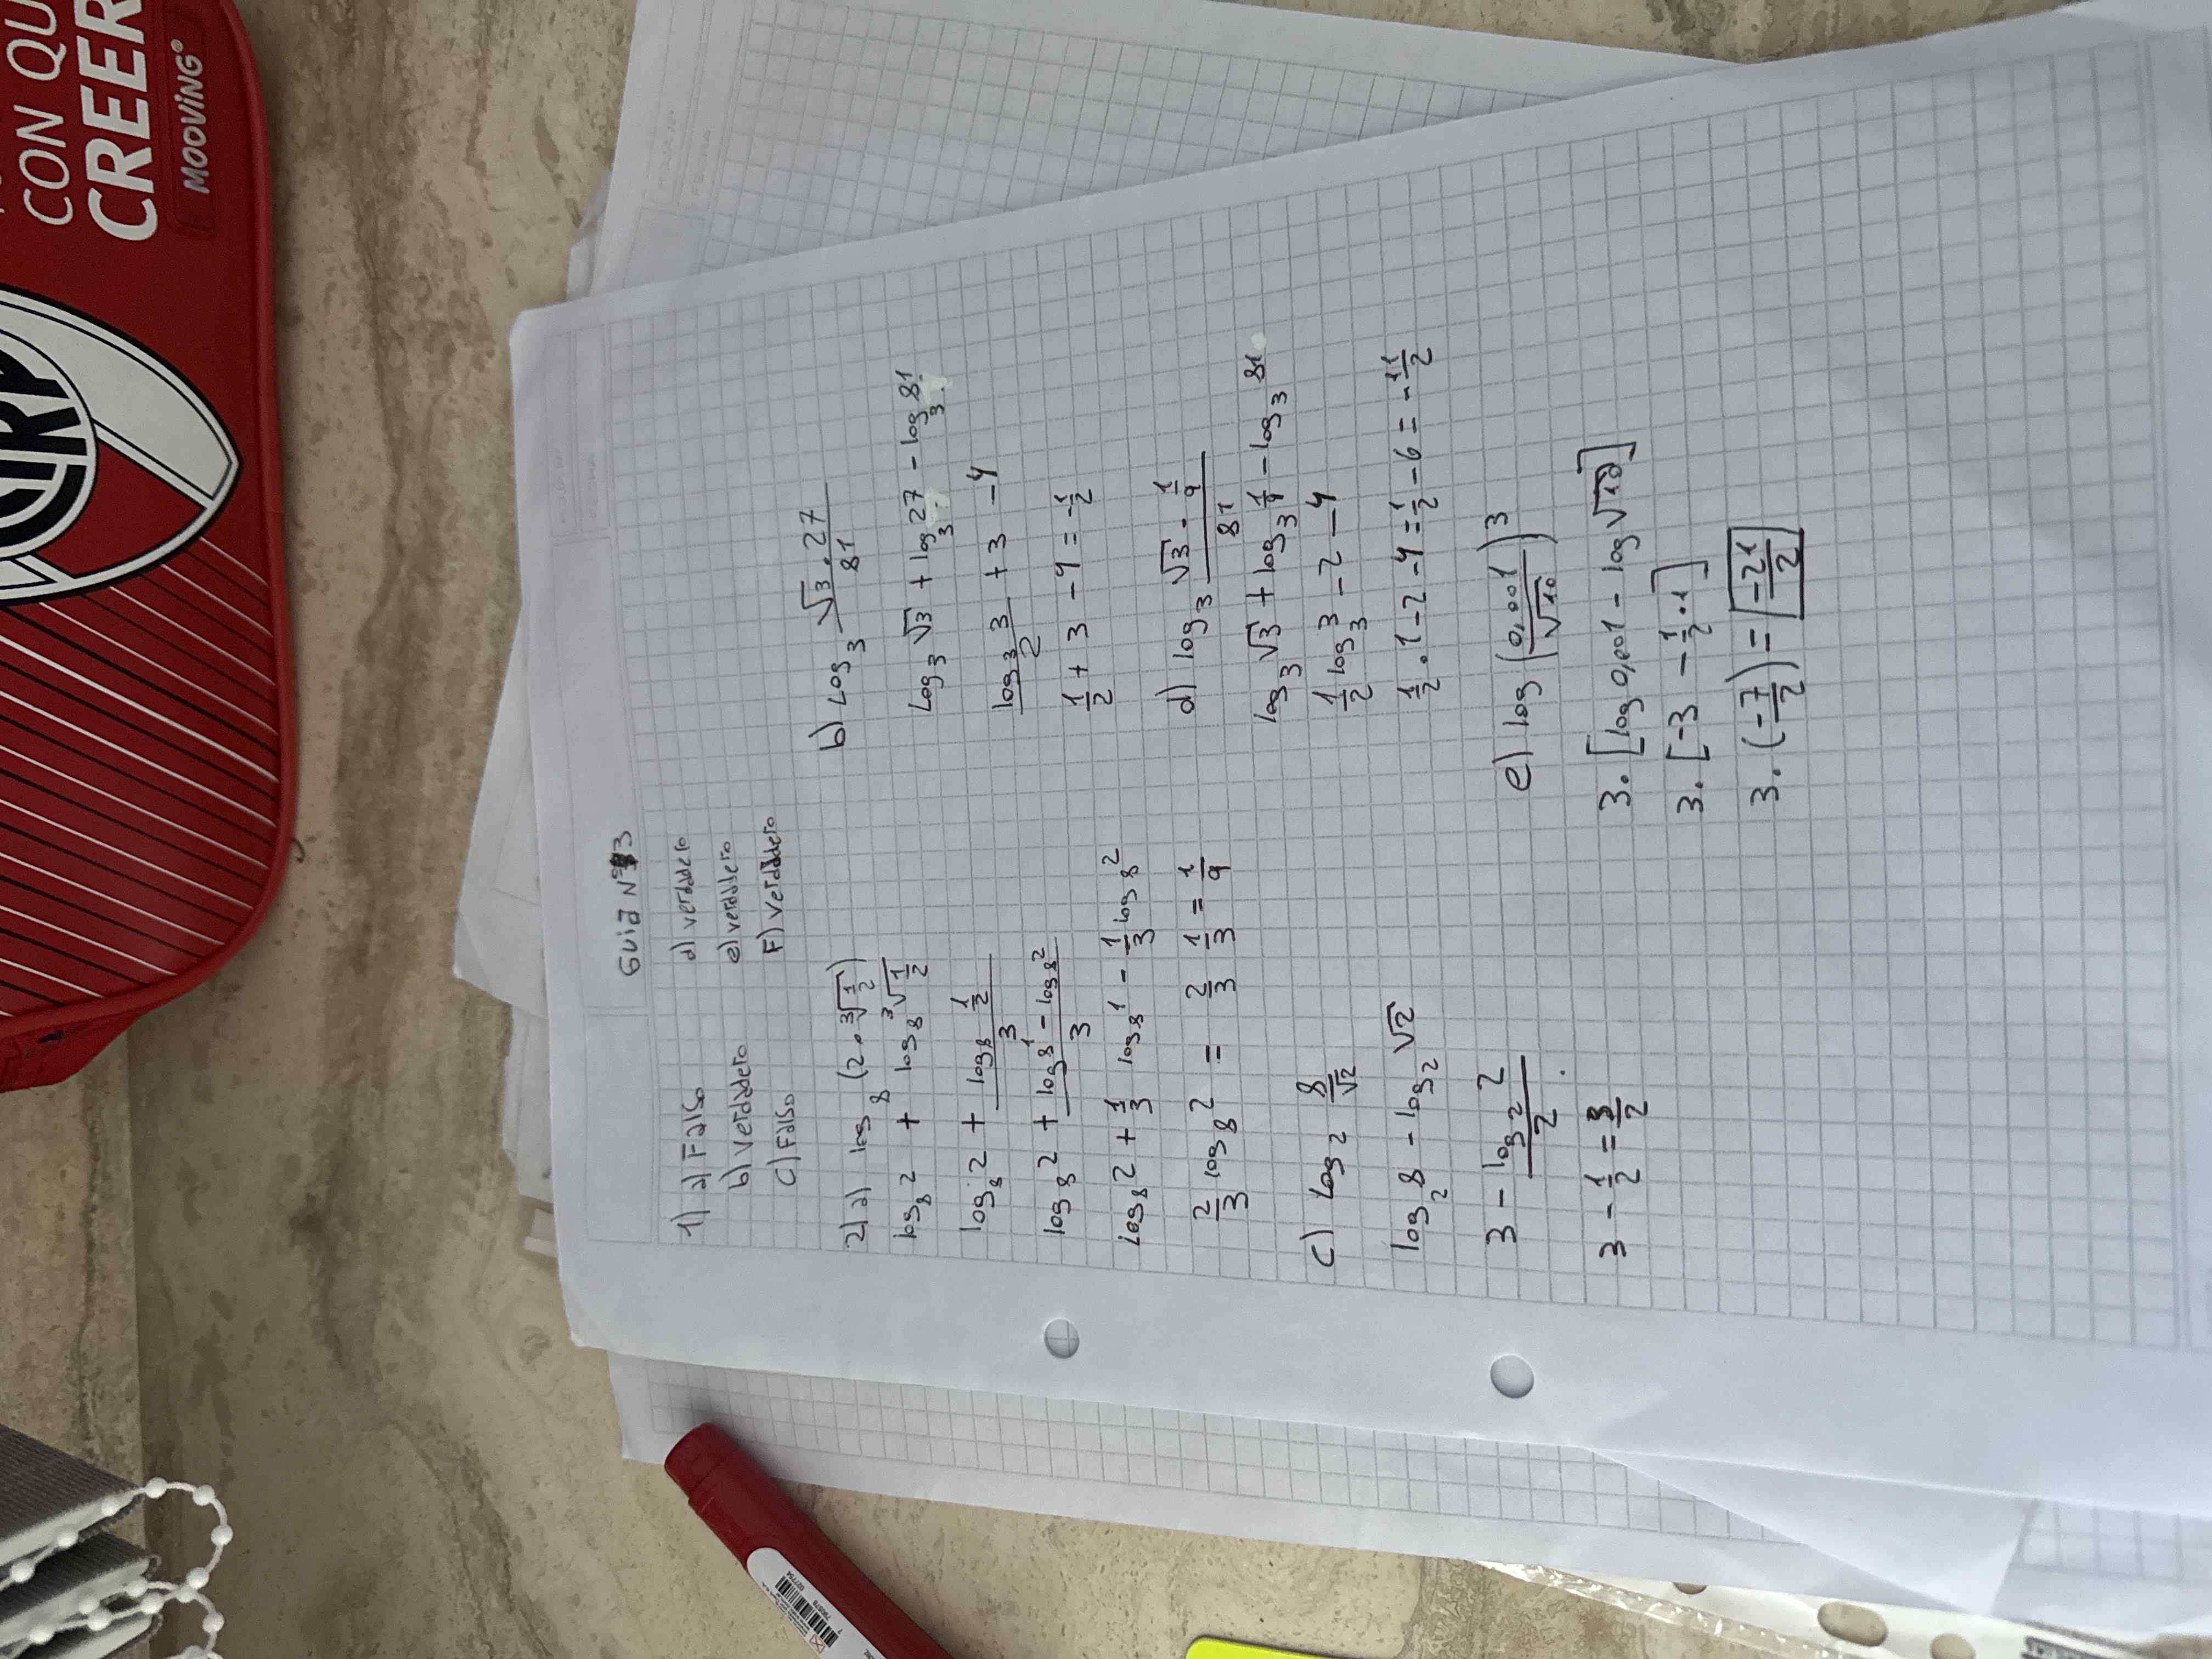 CON QU
CREER
MOOVING
CARP
GUIA N°3
1) a) Falso
b) Verdadero
c) Falso
d) verdadero
e) verdadero
F) Verdadero
2) a) log₈ (2 . ³√(1/2))
log₈ 2 + log₈ ³√(1/2)
log₈ 2 + (log₈ 1/2)/3
log₈ 2 + (log₈ 1 - log₈ 2)/3
log₈ 2 + 1/3 log₈ 1 - 1/3 log₈ 2
2/3 log₈ 2 = 2/3 1/3 = 1/9
b) Log₃ (√3 . 27)/81
Log₃ √3 + log₃ 27 - log₃ 81
(log₃ 3)/2 + 3 - 4
1/2 + 3 - 4 = -1/2
c) Log₂ 8/√2
log₂ 8 - log₂ √2
3 - (log₂ 2)/2
3 - 1/2 = 5/2
d) log₃ (√3 . 1/9)/81
log₃ √3 + log₃ 1/9 - log₃ 81
1/2 log₃ 3 - 2 - 4
1/2 . 1 - 2 - 4 = 1/2 - 6 = -11/2
e) log (0,001/√10)³
3 . [log 0,001 - log √10]
3 . [-3 - 1/2 . 1]
3 . (-7/2) = -21/2